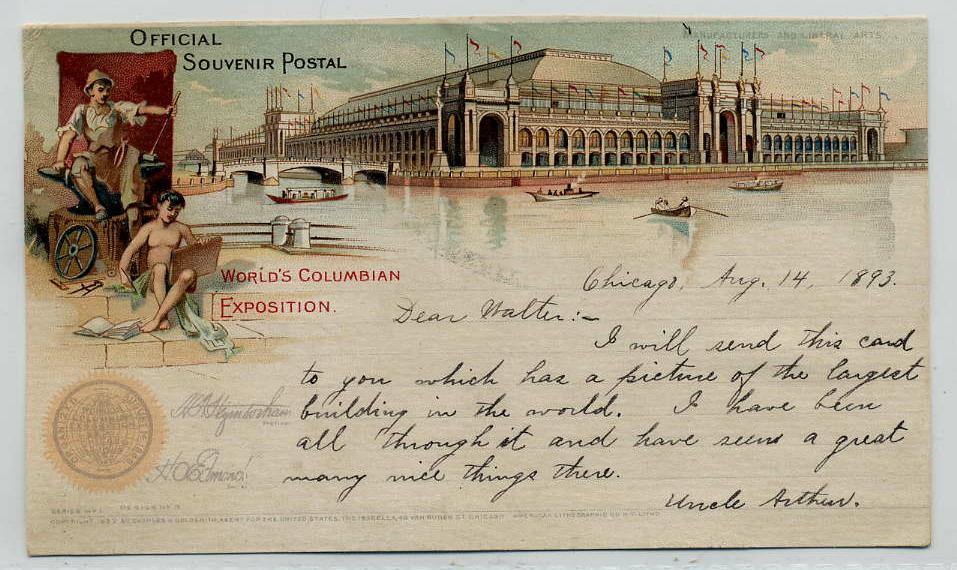 OFFICIAL
SOUVENIR POSTAL
MANUFACTURERS AND LIBERAL ARTS.
WORLD'S COLUMBIAN
EXPOSITION.
Chicago, Aug. 14, 1893.
Dear Walter:-
I will send this card
to you which has a picture of the largest
building in the world. I have been
all through it and have seen a great
many nice things there.
Uncle Arthur.
SERIES Nº1. DESIGN Nº
COPYRIGHT BY CHARLES W. GOLDSMITH, AGENT FOR THE UNITED STATES, VAN BUREN ST. CHICAGO AMERICAN LITHOGRAPHIC CO. N.Y. LITHO.